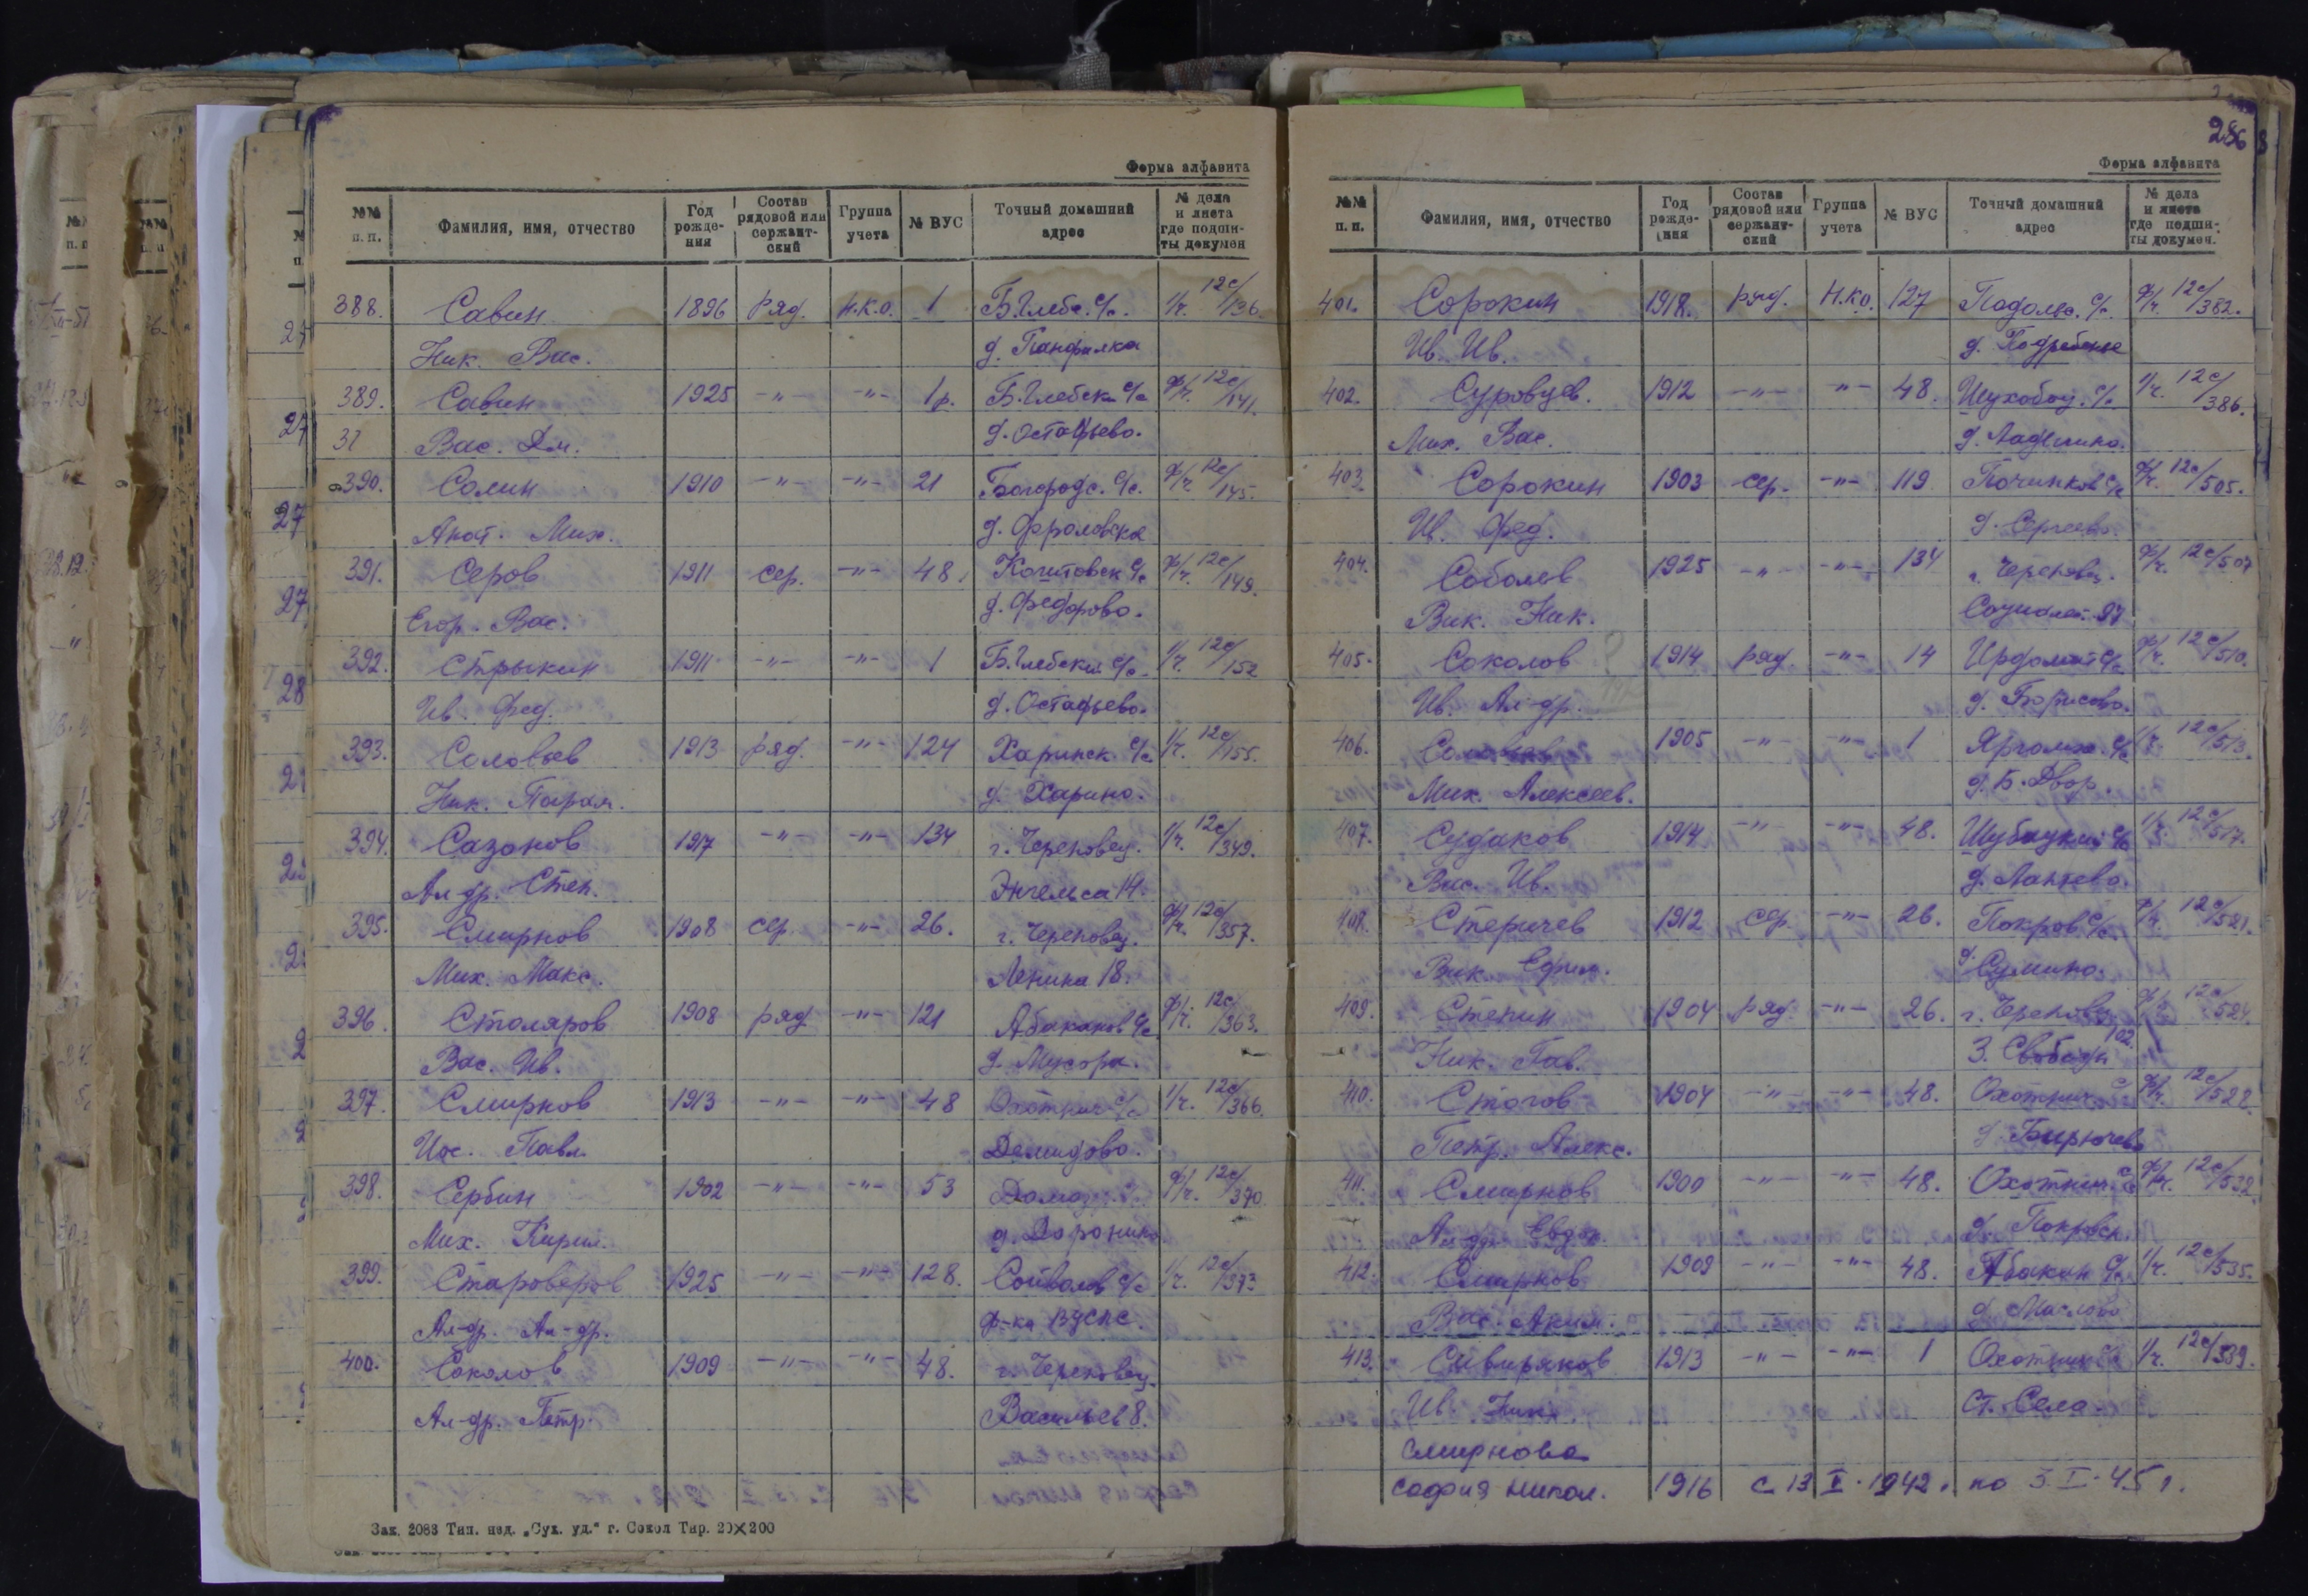 Форма алфавита
№№ п. п. Фамилия, имя, отчество Год рождения Состав рядовой или сержантский Группа учета № ВУС Точный домашний адрес № дела и листа где подшиты докумен
388. Савин 1896 ряд. н.к.о. 1 Б.Глебс. с/с. 1/г. 12с/136.
Ник. Вас. д. Панфилка
389. Савин 1925 -"- -"- 1р. Б.Глебск с/с ф/г. 12с/141.
31 Вас. Дм. д. Остафьево.
390. Солин 1910 -"- -"- 21 Богородс. с/с. ф/г. 12с/145.
Анат. Мих. д. Фроловское
391. Серов 1911 сер. -"- 48. с/с ф/г. 12с/149.
Егор. Вас. д. Федорово.
392. Стрыкин 1911 -"- -"- 1 Б.Глебский с/с. 1/г. 12с/152
Ив. Фед. д. Остафьево.
393. Соловьев 1913 ряд. -"- 124 Харинск с/с 1/г. 12с/155.
Ник. Парам. д. Харино.
394. Сазонов 1917 -"- -"- 134 г. Череповец. 1/г. 12с/349.
Ал-др. Степ. Энгельса 14.
395. Смирнов 1908 сер. -"- 26. г. Череповец. ф/г. 12с/357.
Мих. Макс. Ленина 18.
396. Столяров 1908 ряд -"- 121 Абаканов с/с ф/г. 12с/363.
Вас. Ив. д. Мусора.
397. Смирнов 1913 -"- -"- 48 Охотнич с/с 1/г. 12с/366.
Иос. Павл. Демидово.
398. Сербин 1902 -"- -"- 53 ф/г. 12с/370
Мих. Кирил. д. Доронино
399. Староверов 1925 -"- -"- 128. Сойволов с/с 1/г. 12с/373
Ал-др. Ал-др. ф-ка ВЦСПС.
400. Соколов 1909 -"- -"- 48. г. Череповец.
Ал-др. Петр. Васильев 8.
Зак. 2083 Тип. изд. „Сух. уд.“ г. Сокол Тир. 20×200
286
Форма алфавита
№№ п. п. Фамилия, имя, отчество Год рождения Состав рядовой или сержантский Группа учета № ВУС Точный домашний адрес № дела и листа где подшиты докумен.
401. Сорокин 1918. ряд. Н.к.о. 127 Подолес. с/с. ф/г. 12с/382.
Ив. Ив. д.
402. Суровцев. 1912 -"- -"- 48. Шухобод. с/с. 1/г. 12с/386.
Мих. Вас. д.
403. Сорокин 1903 сер. -"- 119 Починков с/с ф/г. 12с/505.
Ив. Фед. д. Сергеево.
404. Соболев 1925 -"- -"- 134 г. Череповец. ф/г. 12с/507
Вик. Ник. Социалист.
405. Соколов 1914 ряд. -"- 14 Ирдомат с/с ф/г. 12с/510.
Ив. Ал-др. д. Борисово.
406. 1905 -"- -"- 1 Яргомж. с/с 1/г. 12с/513.
Мих. Алексеев. д. Б. Двор.
407. Судаков 1914 -"- -"- 48. Шубацкий с/с 1/г. 12с/517.
Вас. Ив. д. Лантево.
408. Стеричев 1912 сер -"- 26. Покров. с/с. ф/г. 12с/521.
Вик. Ефим. д. Сумино.
409. Степин 1904 ряд -"- 26. г. Череповец ф/г. 12с/524.
Ник. Гав. З. Свободы 102
410. Стогов 1904 -"- -"- 48. Охотнич. с ф/г. 12с/528.
Петр. Алекс. д. Бирючево
411. Смирнов 1900 -"- -"- 48. Охотнич. с/с ф/г. 12с/532.
Ал-др. Евдок. д. Покровск
412. Смирнов 1909 -"- -"- 48. Абакан с/с 1/г. 12с/535.
Вас. Аким. д. Маслово
413. Сивиряков 1913 -"- -"- 1 Охотнич 1/г. 12с/539.
Ив. Ник. Ст. Село.
Смирнова
София Никол. 1916 с 13 1942. по 3. I. 45 г.